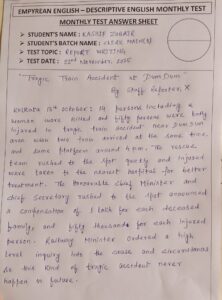 EMPYREAN ENGLISH – DESCRIPTIVE ENGLISH MONTHLY TEST
MONTHLY TEST ANSWER SHEET
➤ STUDENT'S NAME : KASHIF ZUBAIR
➤ STUDENT'S BATCH NAME :
➤ TEST TOPIC : REPORT WRITING
➤ TEST DATE : 22nd November, 2025
"Tragic Train Accident at Dum Dum"
By Staff Reporter, X
Kolkata 13th October : 14 persons including 4
women were killed and fifty persons were badly
injured in tragic train accident near Dum Dum
when two train arrived at the same time,
and same platform around 4 p.m. The rescue
team rushed to the spot quickly and injured
were taken to the nearest hospital for better
treatment. The honorable Chief Minister and
chief Secretary rushed to the spot announced
a compensation of 5 lakh for each deceased
family, and fifty thousands for each injured
person. Railway Minister ordered a high
level inquiry into the cause and circumstances
so this kind of tragic accident never
happen in future.